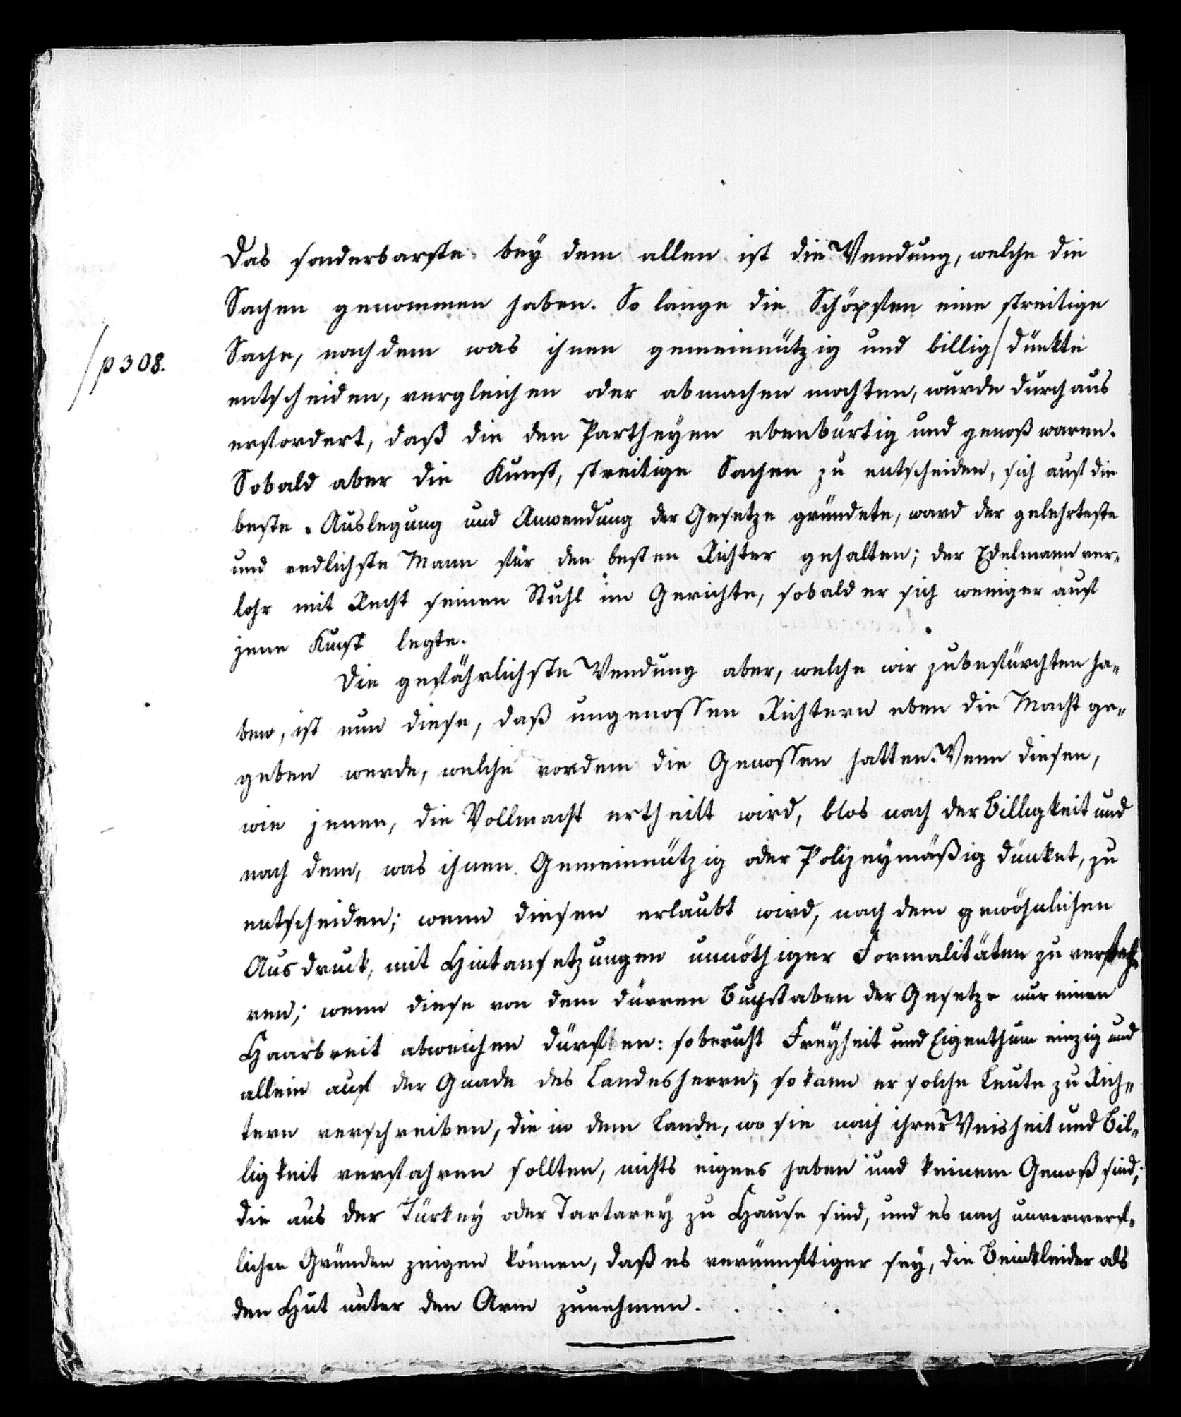 Das sonderbarste bey dem allen ist die Wendung, welche die
Sachen genommen haben. So lange die Schöpffen eine streitige
/p 308.
Sache, nach dem was ihnen gemeinnützig und billig/ dünkte
entscheiden, vergleichen oder abmachen mochten, wurde durchaus
erfordert, daß die den Partheyen ebenbürtig und genoß waren.
Sobald aber die Kunst, streitige Sachen zu entscheiden, sich auf die
beste Auslegung und Anwendung der Gesetze gründete, ward der gelehrteste
und redlichste Mann für den besten Richter gehalten; der Edelmann ver-
lohr mit Recht seinen Stuhl im Gerichte, sobald er sich weniger auf
jene Kunst legte.
Die gefährlichste Wendung aber, welche wir zubefürchten ha-
ben, ist nun diese, daß ungenossen Richtern eben die Macht ge-
geben werde, welche vordem die Genossen hatten. Wenn diesen,
wie jenen, die Vollmacht ertheilt wird, blos nach der Billigkeit und
nach dem, was ihnen Gemeinnützig oder Polizeymäßig dünket, zu
entscheiden; wenn diesen erlaubt wird, nach dem gewöhnlichen
Ausdruck, mit Hintansetzungen unnöthiger Formalitäten zu verfah-
ren; wenn diese von dem dürren Buchstaben der Gesetze nur einen
Haarbreit abweichen dürffen: so beruht Freyheit und Eigenthum einzig und
allein auf der Gnade des Landesherrn; so kann er solche Leute zu Rich-
tern verschreiben, die in dem Lande, wo sie nach ihrer Weisheit und Bil-
ligkeit verfahren sollten, nichts eignes haben und keinem Genoß sind;
die aus der Türkey oder Tartarey zu Hause sind, und es nach unverwerf-
lichen Gründen zeigen können, daß es vernünftiger sey, die Beinkleider als
den Hut unter den Arm zunehmen.